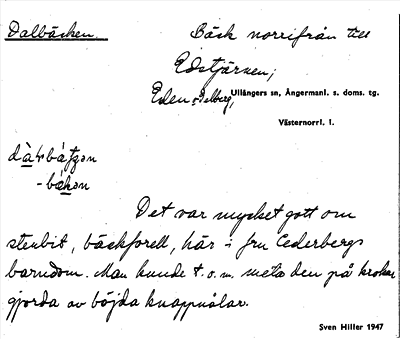 Dalbäcken.
Bäck norrifrån till
Edstjärnen;
Eden o Delberg, Ullångers sn, Ångermanl. s. doms. tg.
Västernorrl. l.
-bákən
Det var mycket gott om
stenbit, bäckforell, här i fru Cederbergs
barndom. Man kunde t.o.m. meta den på krokar
gjorda av böjda knappnålar.
Sven Hiller 1947